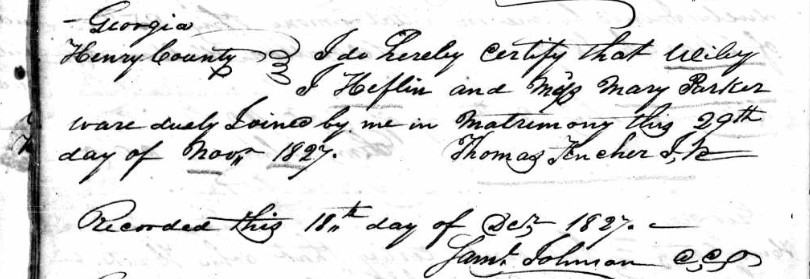 Georgia
Henry County } I do hereby certify that Wiley
J Heflin and Miss Mary Parker
ware duely Joined by me in Matrimony this 29th
day of Novr 1827. Thomas J. P.
Recorded this 18th day of Decr 1827.
Saml Johnson C.C.O.